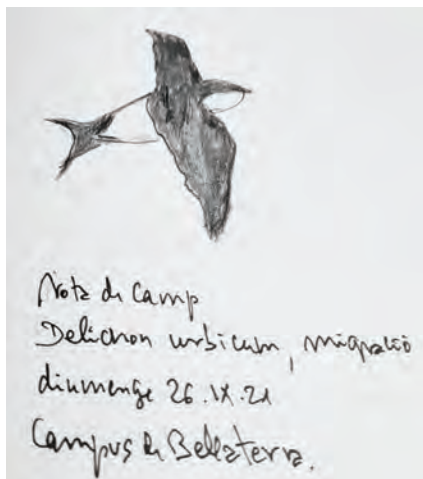 Nota de Camp
Delichon urbicum, migració
diumenge 26.IX.21
Campus de Bellaterra.